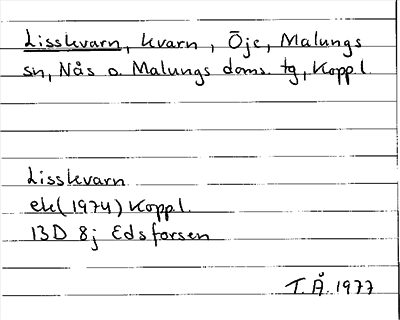 Lisskvarn, kvarn, Öje, Malungs
sn, Nås o. Malungs doms. tg, Kopp.l.
Lisskvarn
ek (1974) Kopp.l.
13D 8j Edsforsen
T.Å. 1977